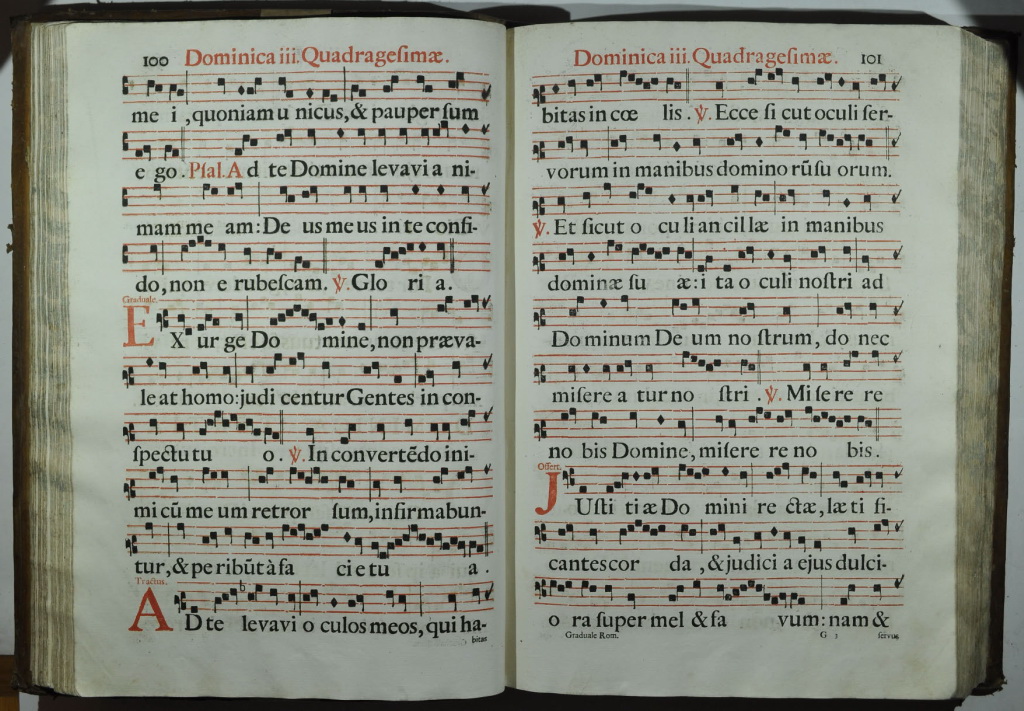 100 Dominica iii. Quadrageſimæ.
me i ,quoniam u nicus,& pauper ſum
e go . Pſal. A d te Domine levavi a ni-
mam me am: De us me us in te confi-
do, non e rubeſcam. ℣. Glo ri a.
Graduale.
E X ur ge Do mine, non præva-
le at homo: judi centur Gentes in con-
ſpectu tu o. ℣. In convertẽdo ini-
mi cũ me um retror ſum, infirmabun-
tur, & peribũt à fa cie tu a .
Tractus.
A D te levavi o culos meos, qui ha-
bitas
Dominica iii. Quadrageſimæ. 101
bitas in cœ lis . ℣. Ecce ſi cut oculi ſer-
vorum in manibus domino rũ ſu orum.
℣. Et ſicut o culi ancillæ in manibus
dominæ ſu æ: i ta o culi noſtri ad
Dominum De um no ſtrum, do nec
miſere a tur no ſtri . ℣. Miſere re
no bis Domine, miſere re no bis.
Offert.
J Uſti ti æ Do mini re ctæ, læ ti fi-
cantes cor da , & judici a ejus dulci-
o ra ſuper mel & fa vum: nam &
Graduale Rom. G 3 ſervus